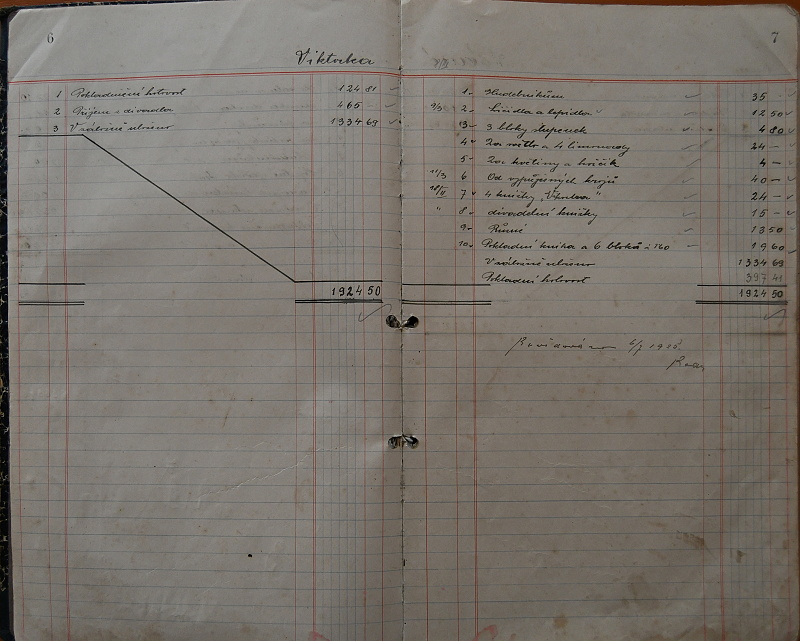 6
Viktorka
1 Pokladniční hotovost 124 81
2 Příjem z divadla 465 —
3 Vzáložně uloženo 1334 69
1924 50
7
1. Hudebníkům 35 —
9/3 2. Líčidla a lepidla 12 50
3. 3 bloky stupenek 4 80
4. Za světlo a 4 limonady 24 —
5. Za květiny a 4 —
11/3 6 Od vypůjčených krojů 40 —
7 4 knížky „Viktorka" 24 —
" 8. divadelní knížky 15 —
9. Různé 13 50
10. Pokladní kniha a 6 bloků à 1.60 19 60
Vzáložně uloženo 1334 69
Pokladní hotovost 397 41
1924 50
Revidováno